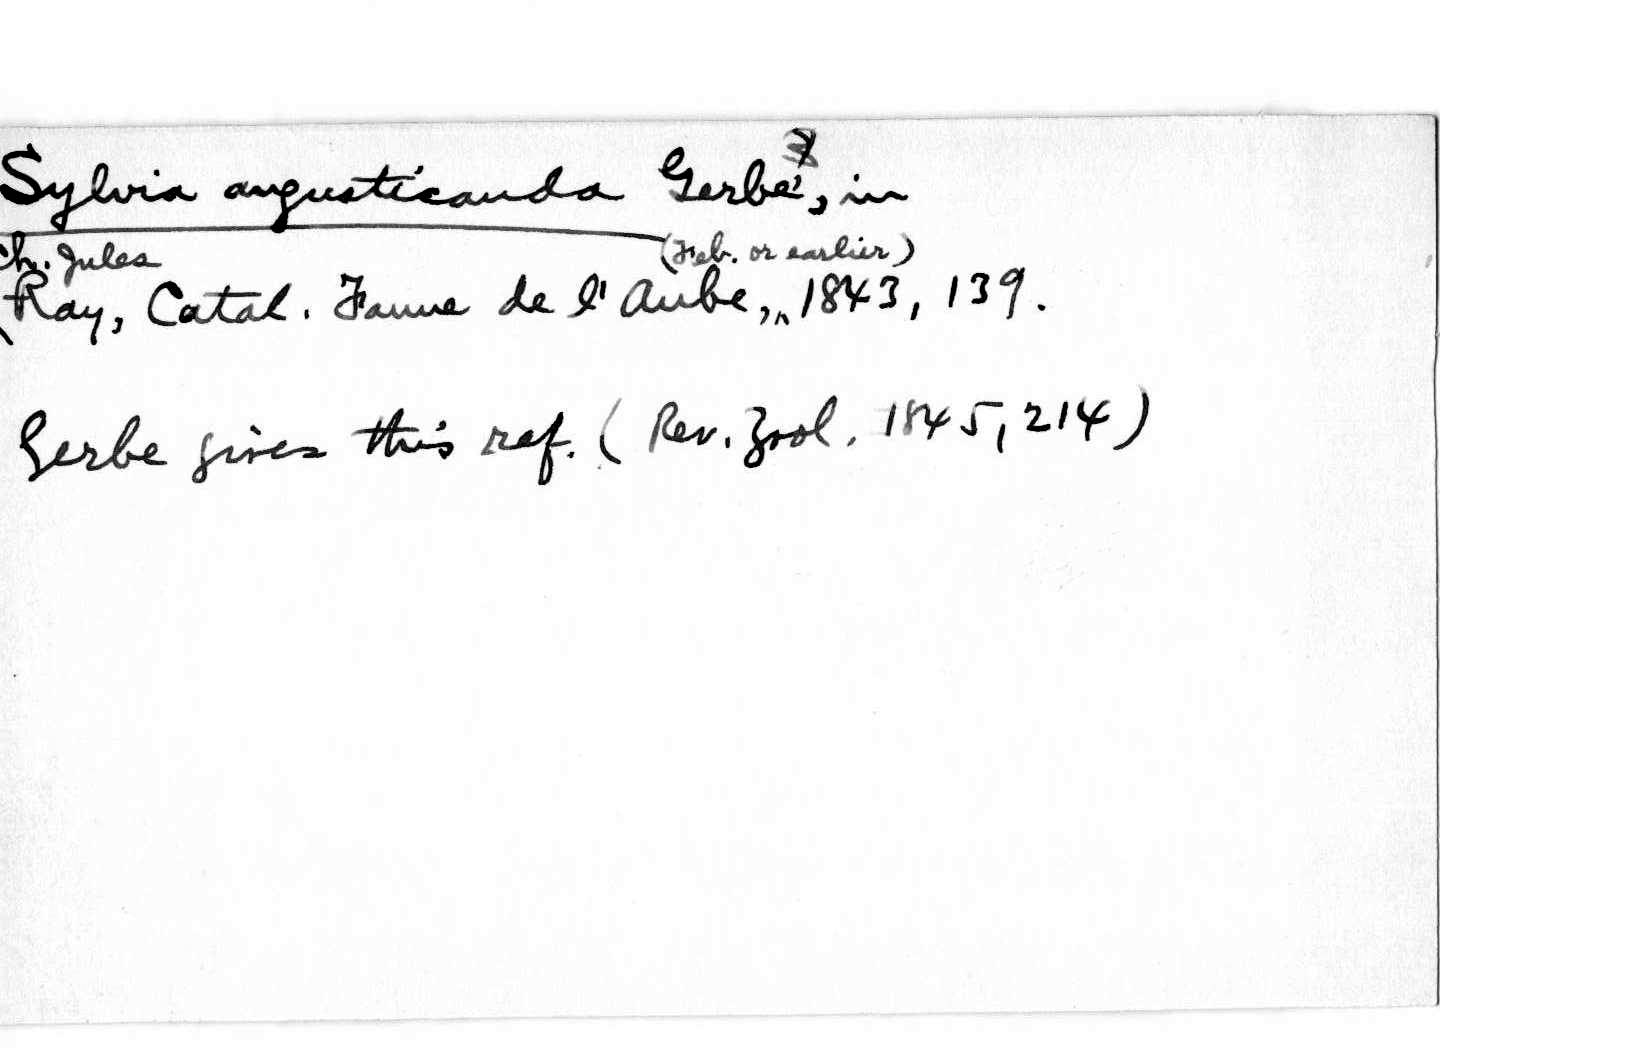 Sylvia angusticauda Gerbe, in
Ch. Jules (Feb. or earlier)
Ray, Catal. Faune de l'Aube, 1843, 139.
Gerbe gives this ref. (Rev. Zool. 1845, 214)